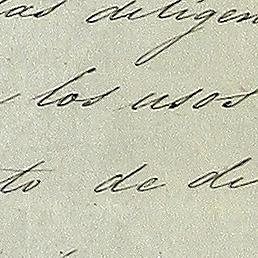 las diligen
los usos
to de di